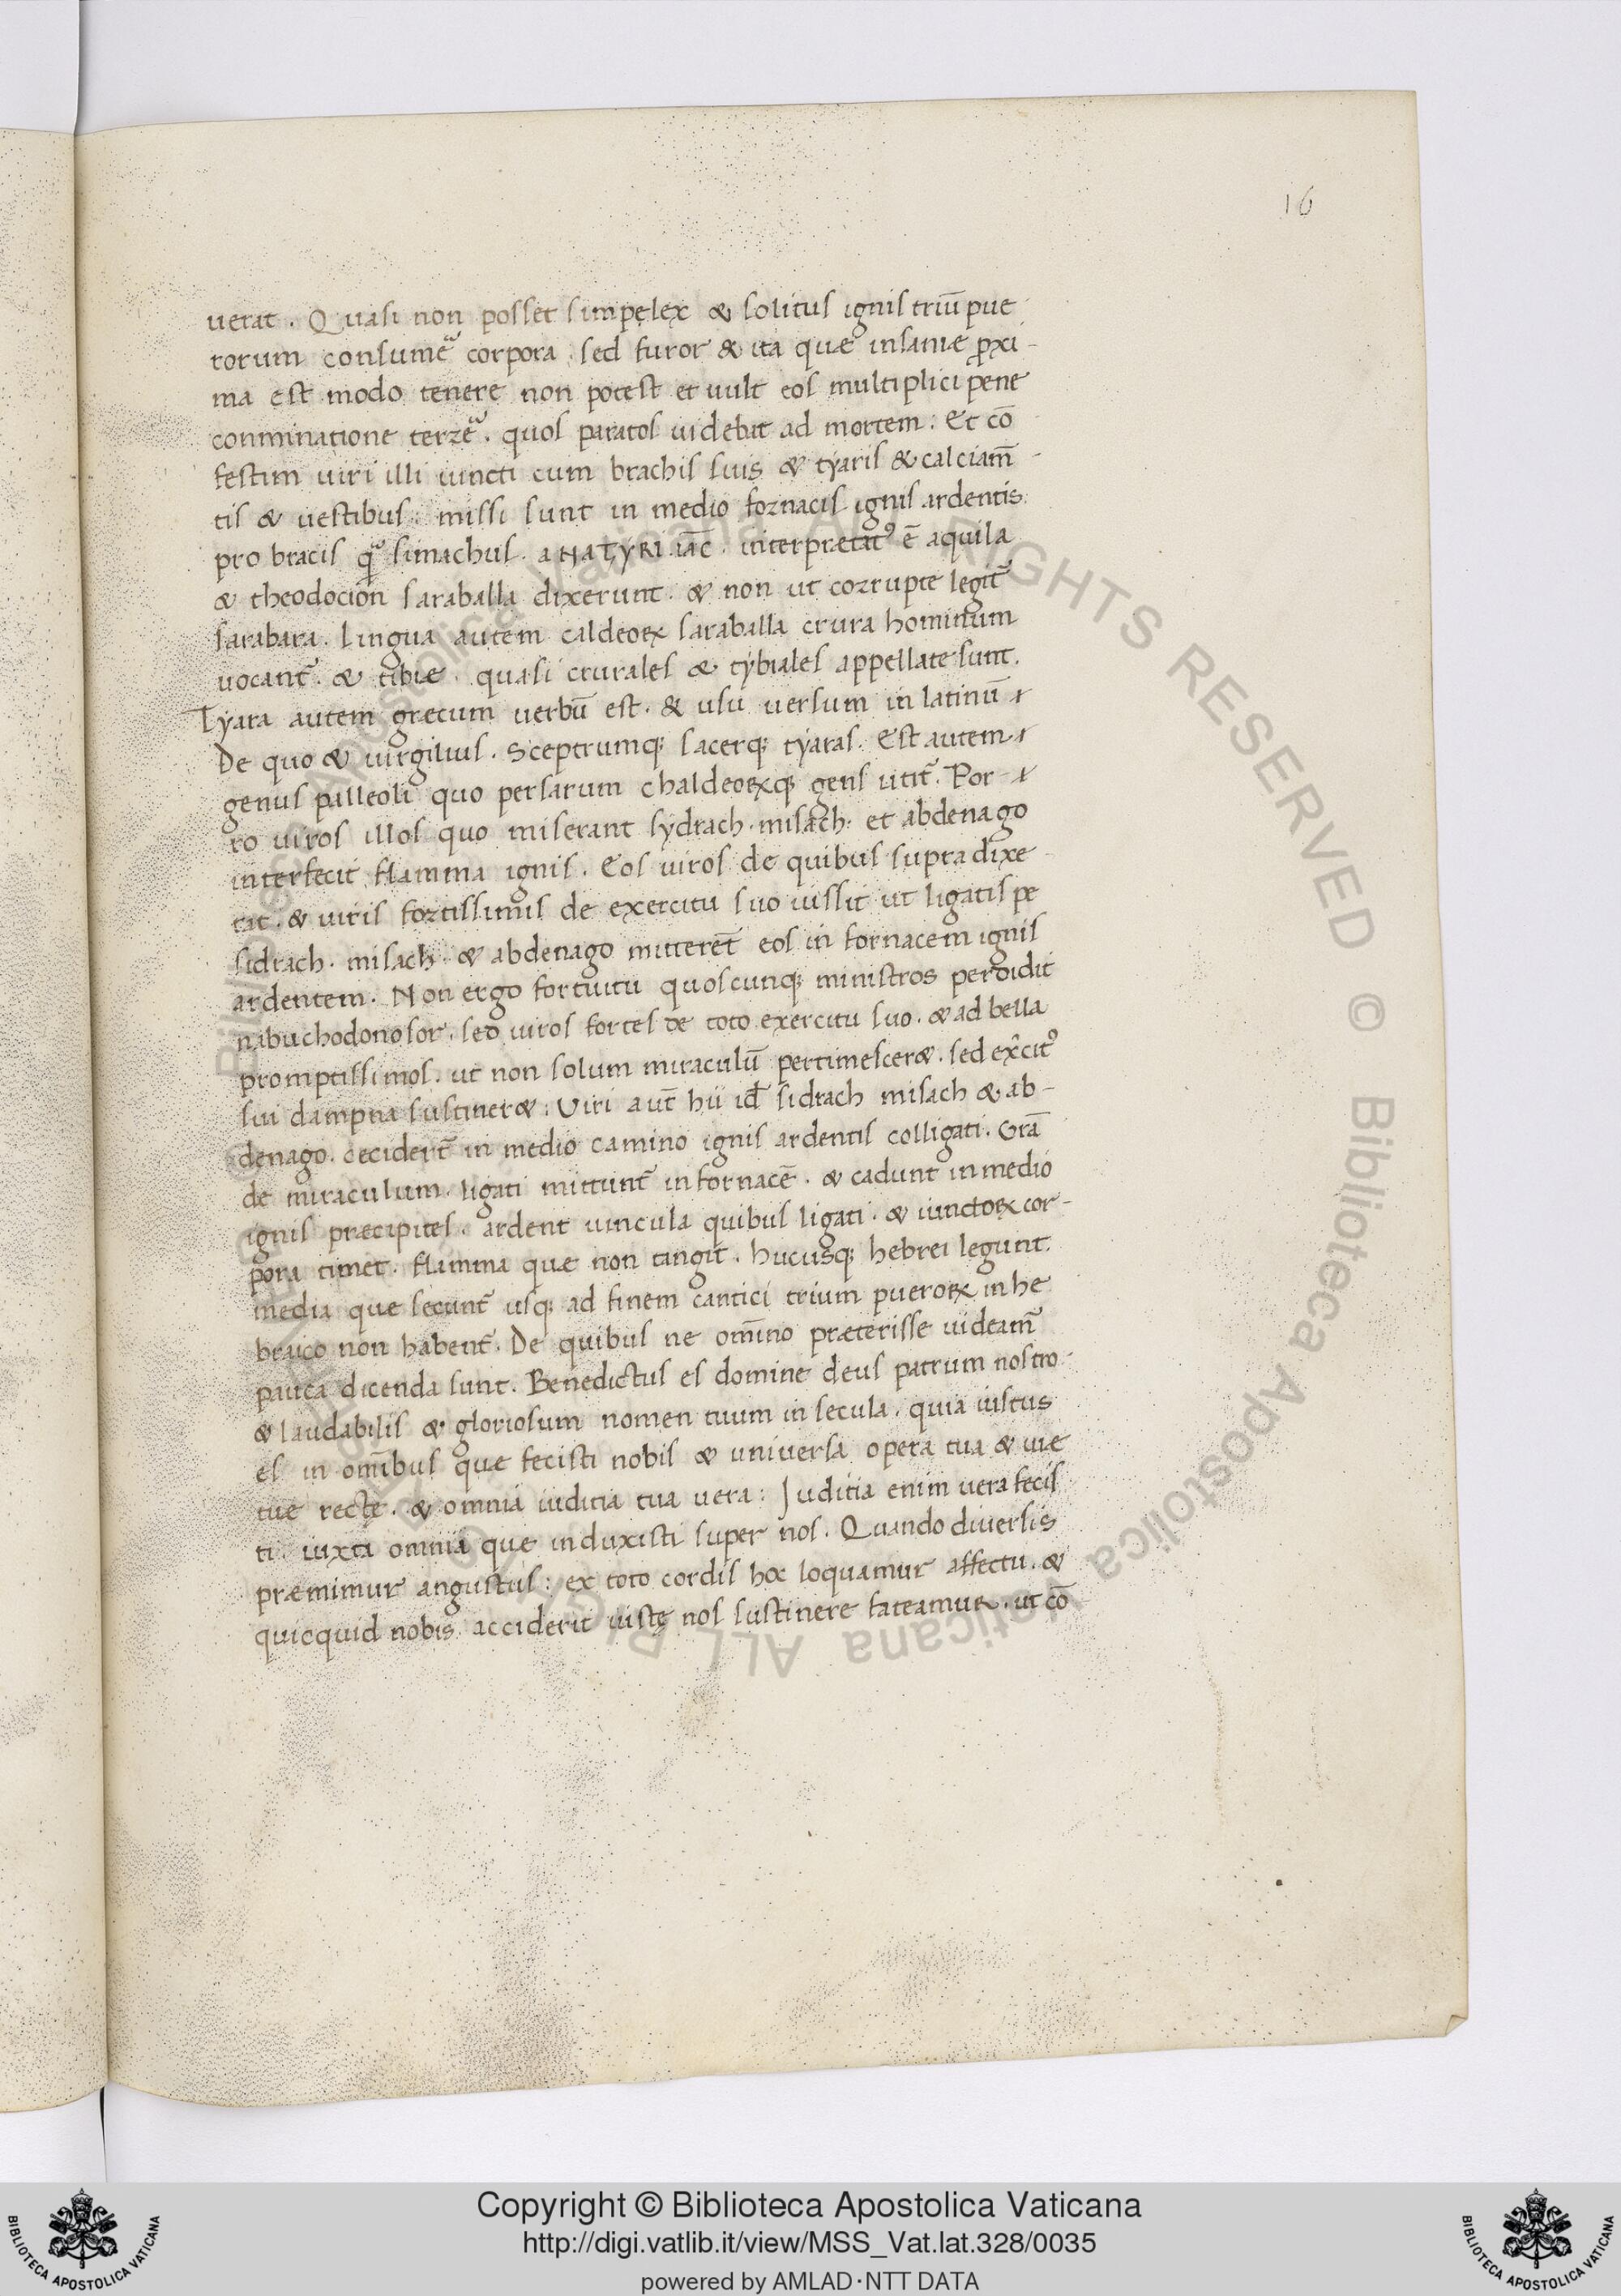 16
uerat. Quasi non posset simpelex & solitus ignis triū pue
rorum consumẽ corpora. sed furor & ita quæ insaniæ ꝓxi-
ma est modo tenere non potest et uult eos multiplici pene
conminatione terrẽ. quos paratos uidebat ad mortem: Et cō
festim uiri illi uincti cum brachis suis & tyaris & calciam̄
tis & uestibus: missi sunt in medio fornacis ignis ardentis
pro bracis q̃ simachus. aNaTyRI iāc. interpretatꝰ ē aquila
& theodocion saraballa dixerunt. & non ut corrupte legit̃
sarabara. Lingua autem caldeoꝝ saraballa crura hominum
uocant̃. & tibiæ. quasi crurales & tybiales appellate sunt.
Tyara autem grecum uerbū est. & usu uersum in latinū
De quo & uirgilius. Sceptrumq; sacerq; tyaras. Est autem
genus pilleoli quo persarum chaldeoꝝq; gens utit̃. Por-
ro uiros illos quo miserant sydrach. misach. et abdenago
interfecit flamma ignis. Eos uiros de quibus supra dixe
rat. & uiris fortissimis de exercitu suo iussit ut ligatis pe
sidrach. misach. & abdenago mitteret̃ eos in fornacem ignis
ardentem. Non ergo fortuitu quoscunq; ministros perdidit
nabuchodonosor. sed uiros fortes de toto exercitu suo. & ad bella
promptissimos. ut non solum miraculū pertimescer&. sed ex̃citꝰ
sui dampna sustiner&. Viri aut̃ hii id̄ sidrach misach & ab-
denago. cecider̃t in medio camino ignis ardentis colligati. Grā
de miraculum. ligati mittunt̃ in fornacē. & cadunt in medio
ignis præcipites. ardent uincula quibus ligati. & iunctoꝝ cor-
pora timet. flamma quæ non tangit. hucusq; hebrei legunt.
media que secunt̃ usq; ad finem cantici trium pueroꝝ in he
braico non habent̃. De quibus ne om̄ino præterisse uideam̃
pauca dicenda sunt. Benedictus es domine deus patrum nostro
& laudabilis & gloriosum nomen tuum in secula. quia iustus
es in om̄ibus quæ fecisti nobis & uniuersa opera tua & uiæ
tue recte. & omnia iuditia tua uera: Juditia enim uera fecis
ti. iuxta omnia que induxisti super nos. Quando diuersis
præmimur angustiis: ex toto cordis hoc loquamur affectu. &
quicquid nobis acciderit iuste nos sustinere fateamur. ut cō
Copyright © Biblioteca Apostolica Vaticana
http://digi.vatlib.it/view/MSS_Vat.lat.328/0035
powered by AMLAD·NTT DATA
BIBLIOTECA APOSTOLICA VATICANA
BIBLIOTECA APOSTOLICA VATICANA